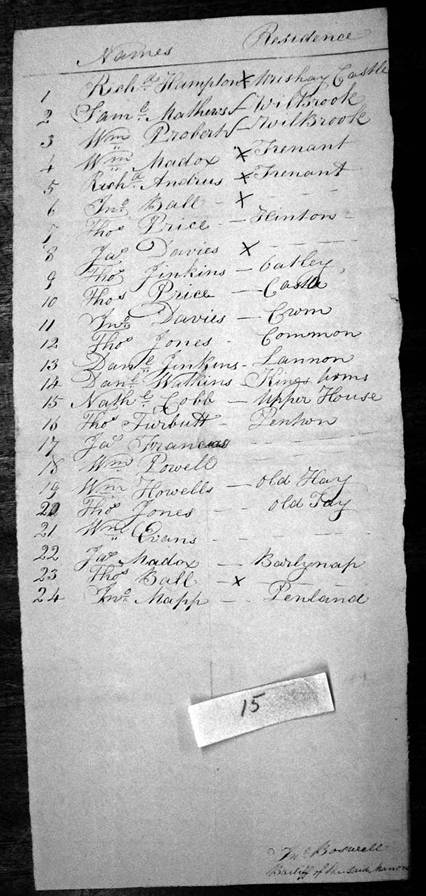 Names Residence
1 Richd Hampton x Urishay Castle
2 Saml Mathews Wilbrook
3 Wm Probert Wilbrook
4 Wm Madox x Trenant
5 Richd Andrus x Trenant
6 Jno Ball x
7 Thos Price — Hinton
8 Jas Davies x
9 Thos Jinkins — Catley
10 Thos Price — Castle
11 Jno Davies — Cwm
12 Thos Jones - Common
13 Danl Jinkins - Lannon
14 Danl Watkins - Kings Arms
15 Nathl Cobb — Upper House
16 Thos Turbutt - Penhon
17 Jas Frances
18 Wm Powell
19 Wm Howells — Old Hay
20 Thos Jones - Old Tay
21 Wm Evans - -
22 Jas Madox — Barlynap
23 Thos Ball - x
24 Jno Mapp — Penland
15
Jno Boswell
Bailiff of the said Manor